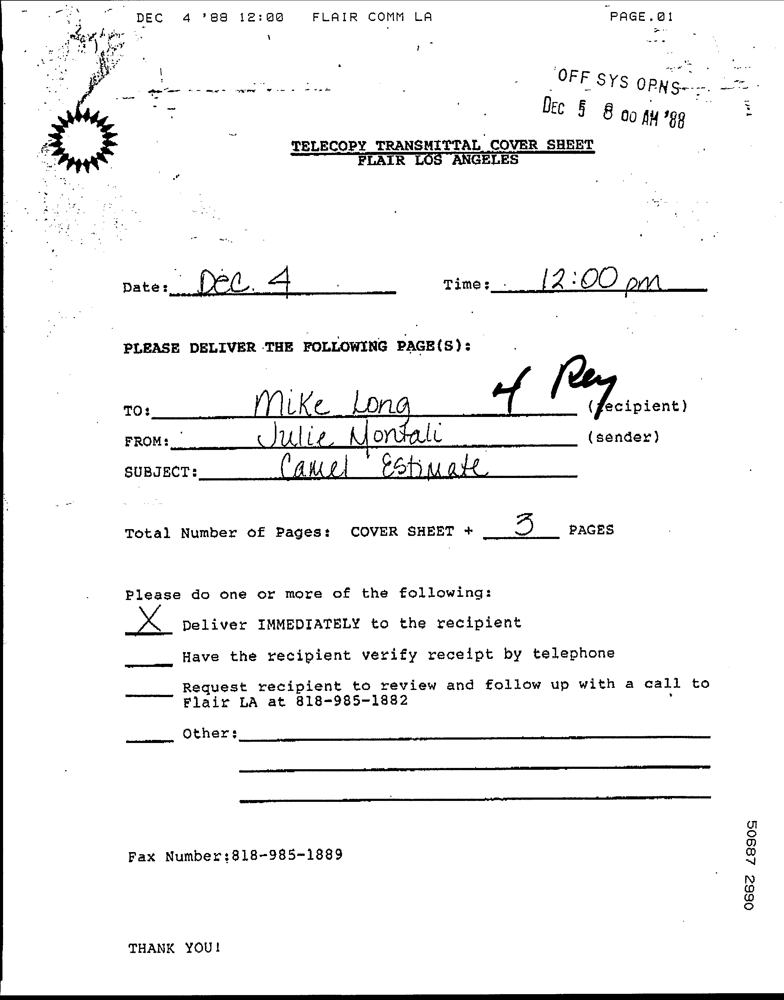 DEC 4 '88 12:00 FLAIR COMM LA PAGE.01
OFF SYS OPNS
DEC 5 8 00 AM '88
TELECOPY TRANSMITTAL COVER SHEET
FLAIR LOS ANGELES
Date: Dec. 4 Time: 12:00 pm
PLEASE DELIVER THE FOLLOWING PAGE(S):
4
TO: Mike Long (recipient)
FROM: Julie Montali (sender)
SUBJECT: Camel Estimate
Total Number of Pages: COVER SHEET + 3 PAGES
Please do one or more of the following:
X Deliver IMMEDIATELY to the recipient
Have the recipient verify receipt by telephone
Request recipient to review and follow up with a call to
Flair LA at 818-985-1882
Other:
Fax Number:818-985-1889
THANK YOU!
50687 2990